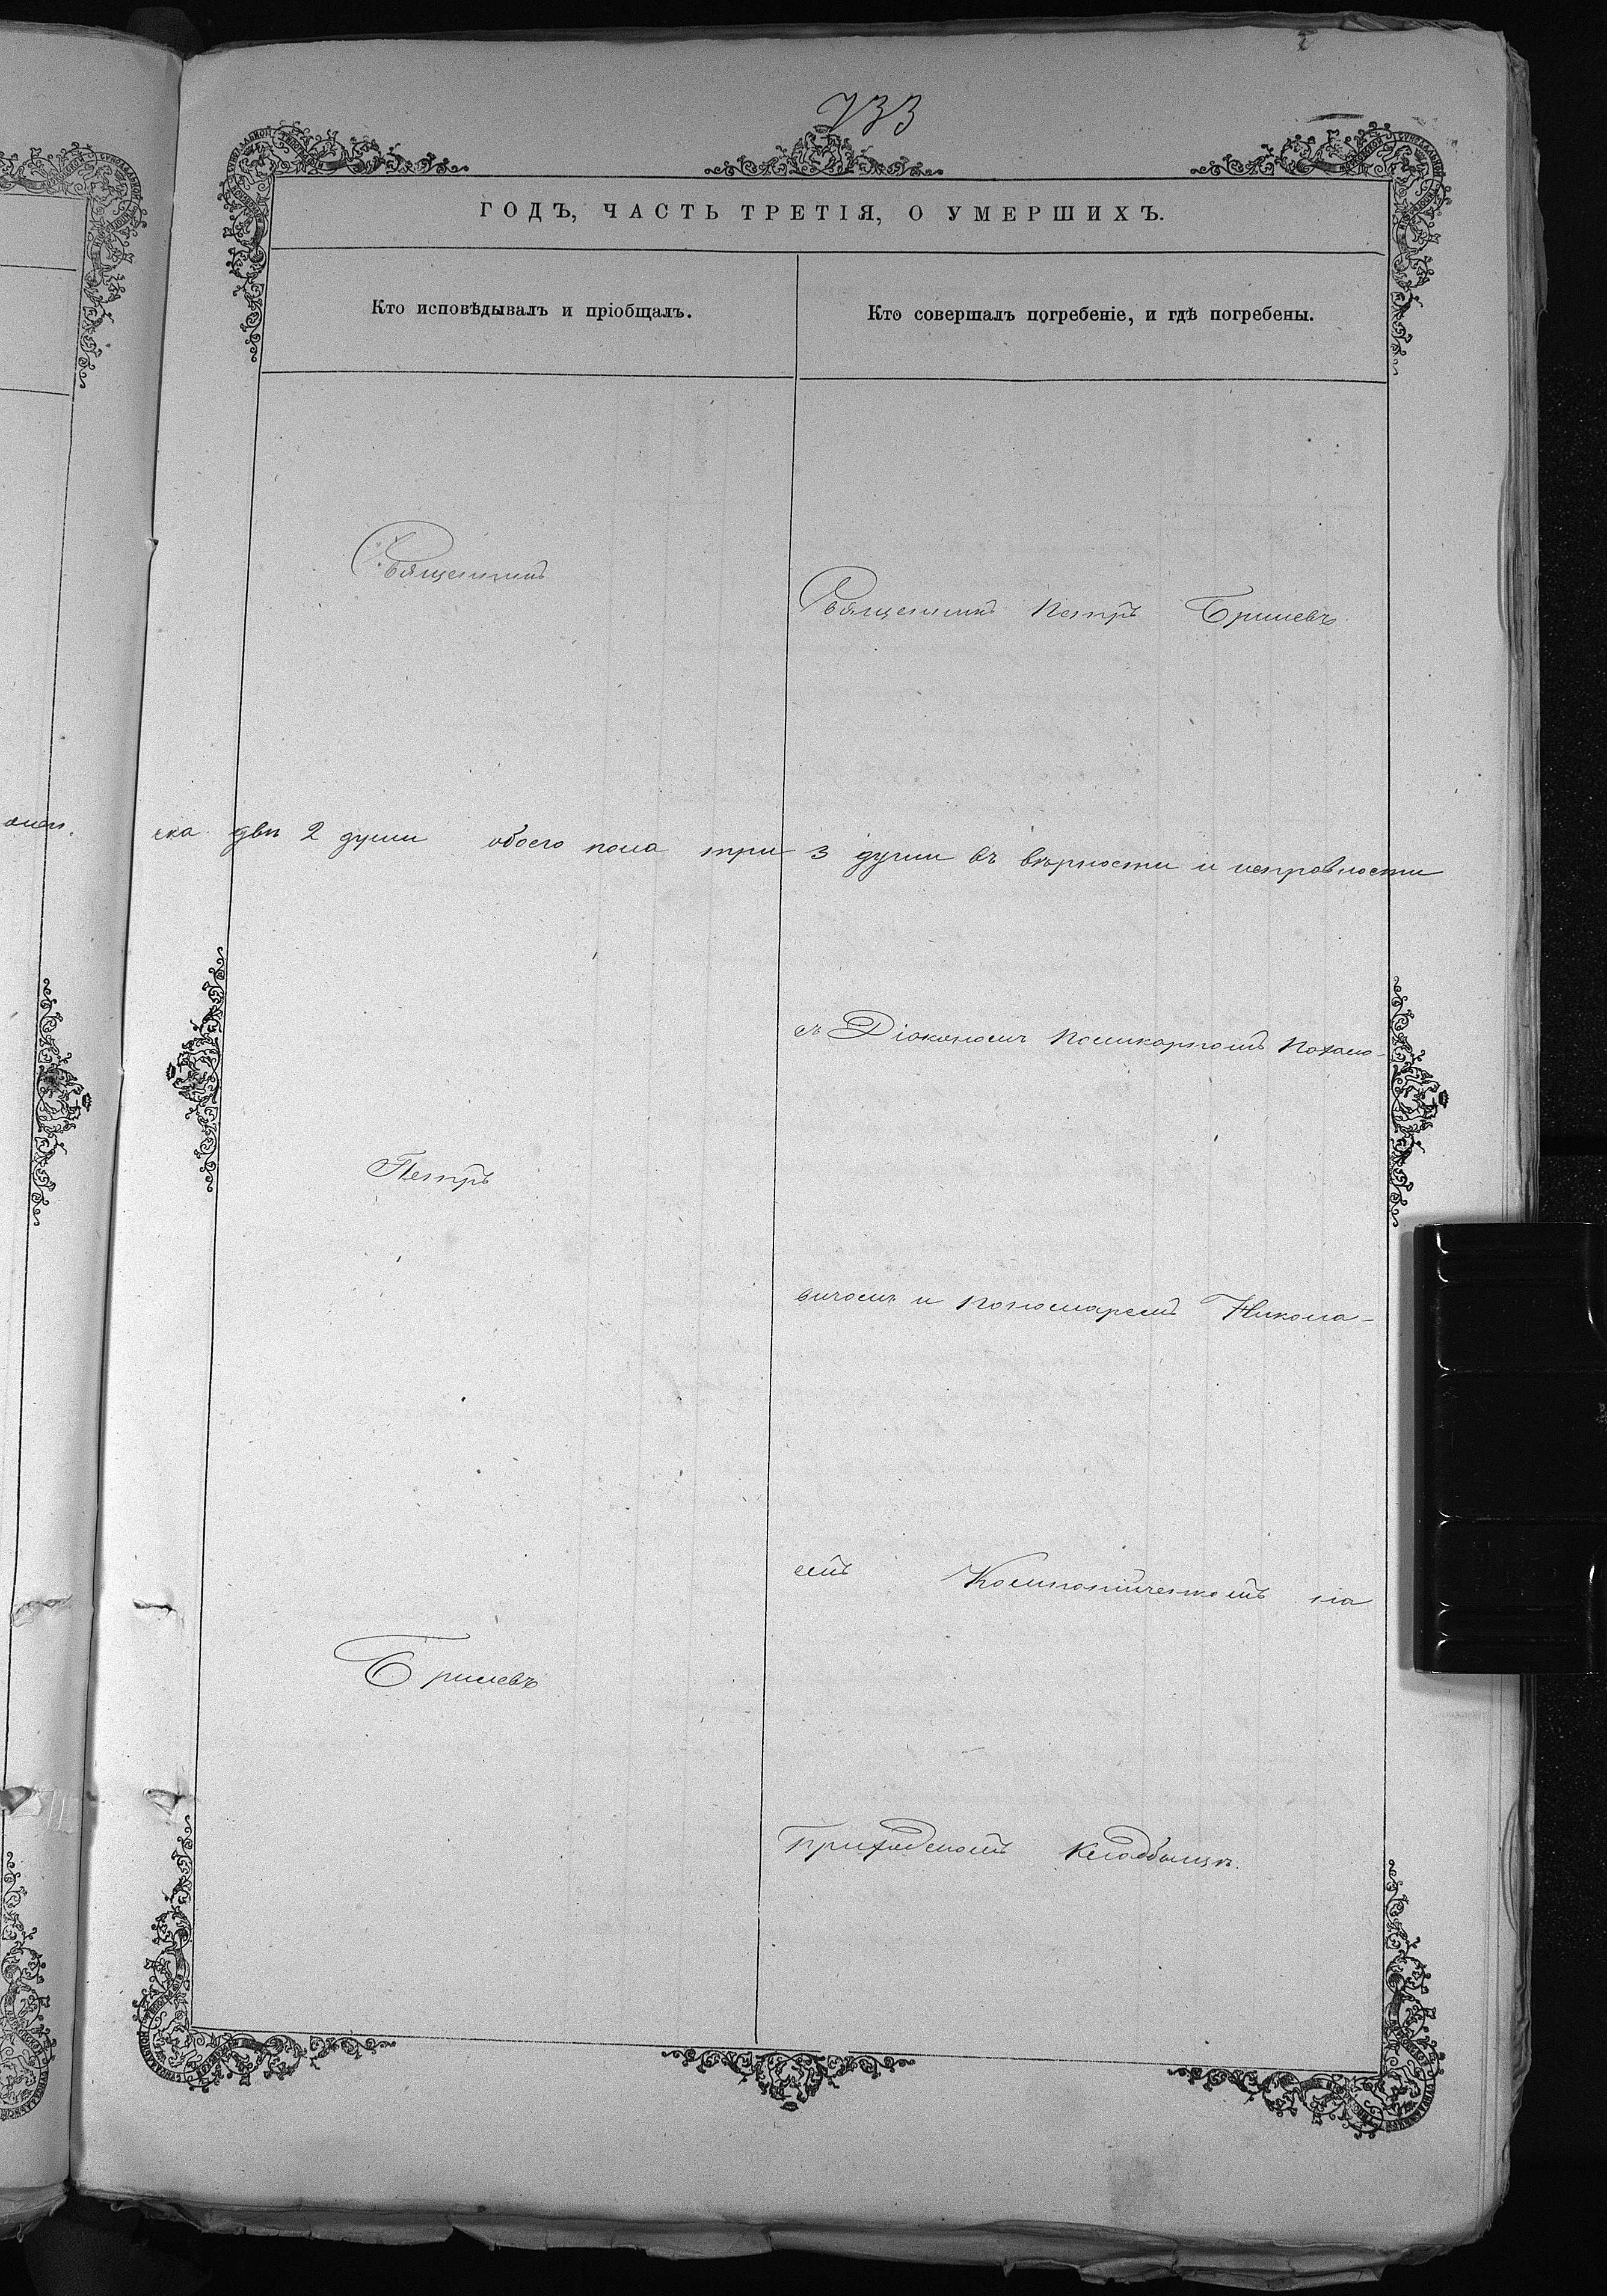 733
ГОДЪ, ЧАСТЬ ТРЕТІЯ, О УМЕРШИХЪ.
Кто исповѣдывалъ и пріобщалъ.
Кто совершалъ погребеніе, и гдѣ погребены.
Священникъ
Священникъ Петръ Брилевъ.
ска двѣ 2 души обоего пола три 3 души въ вѣрности и исправности
съ Діакономъ Поликарпомъ
Петръ
вичомъ и пономаремъ Никола-
емъ на
Брилевъ
приходскомъ кладбищѣ.